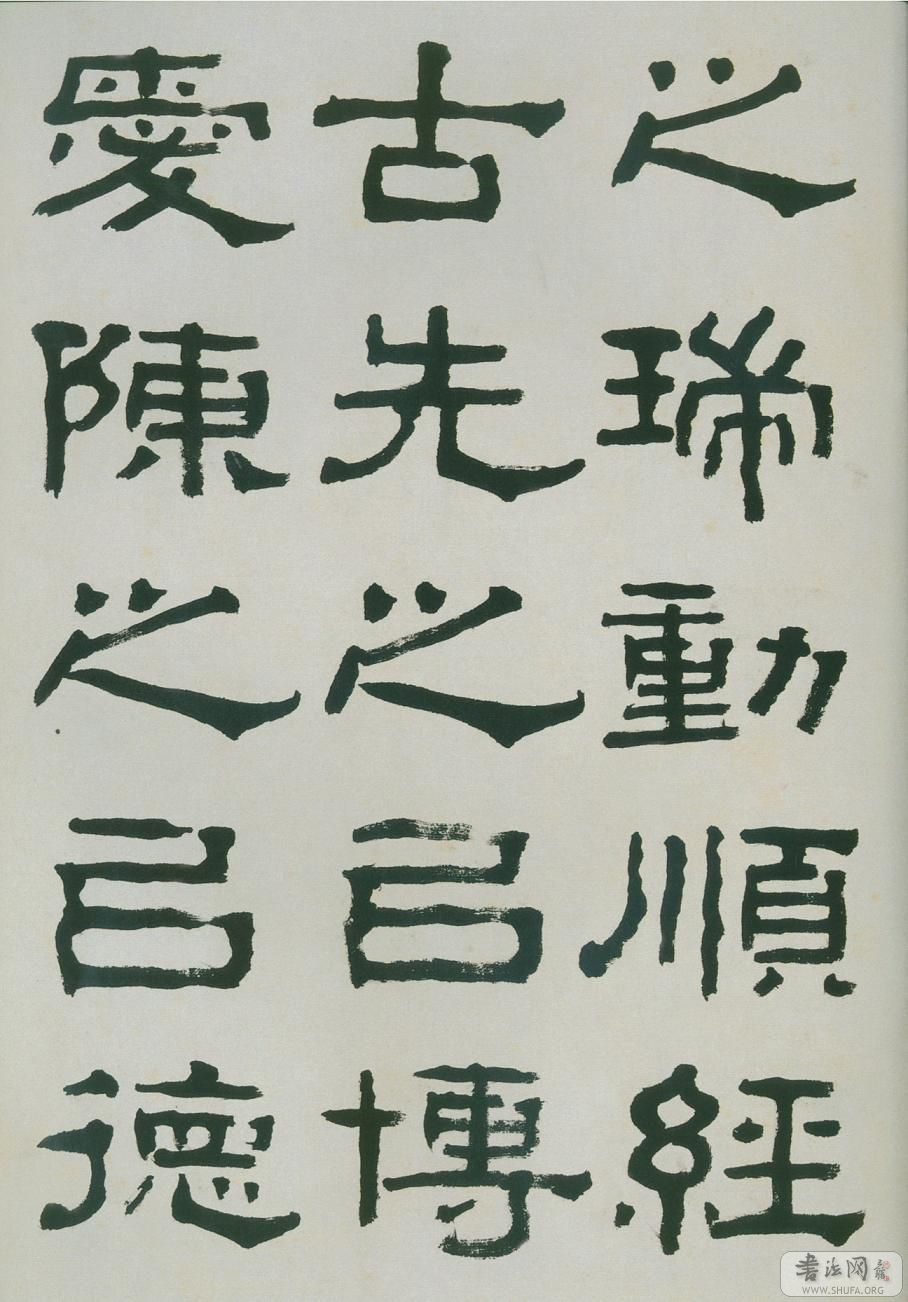 之瑞動順經
古先之㠯博
愛陳之㠯德
書法网
WWW.SHUFA.ORG